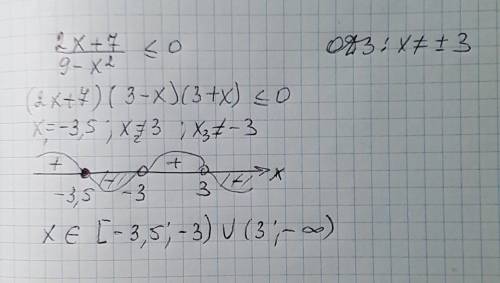 (2x+7)/(9-x²) ≤ 0
ОДЗ: x ≠ ± 3
(2x+7)(3-x)(3+x) ≤ 0
x₁=-3,5 ; x₂≠3 ; x₃≠-3
+ - + - x
-3,5 -3 3
x ∈ [-3,5;-3) ∪ (3;-∞)